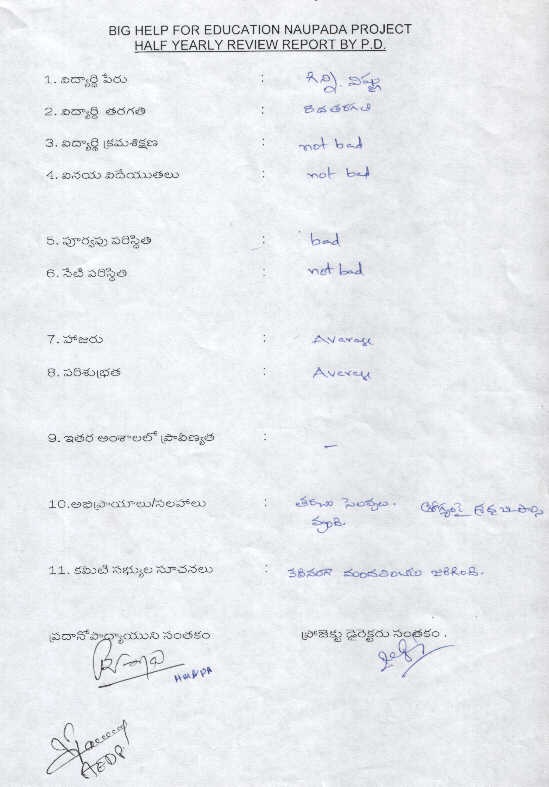 BIG HELP FOR EDUCATION NAUPADA PROJECT
HALF YEARLY REVIEW REPORT BY P.D.
1. విద్యార్థి పేరు : గిన్ని. విష్ణు
2. విద్యార్థి తరగతి : 8వ తరగతి
3. విద్యార్థి క్రమశిక్షణ : not bad
4. వినయ విదేయుతలు : not bad
5. పూర్వపు పరిస్థితి : bad
6. నేటి పరిస్థితి : not bad
7. హాజరు : Average
8. పరిశుభ్రత : Average
9. ఇతర అంశాలలో ప్రావిణ్యత : –
10.అభిప్రాయాలు/సలహాలు : తరచు సెలవులు.
11. కమిటి సభ్యుల సూచనలు : జరిగింది.
ప్రదానోపాధ్యాయుని సంతకం ప్రోజెక్టు డైరెక్టరు సంతకం .